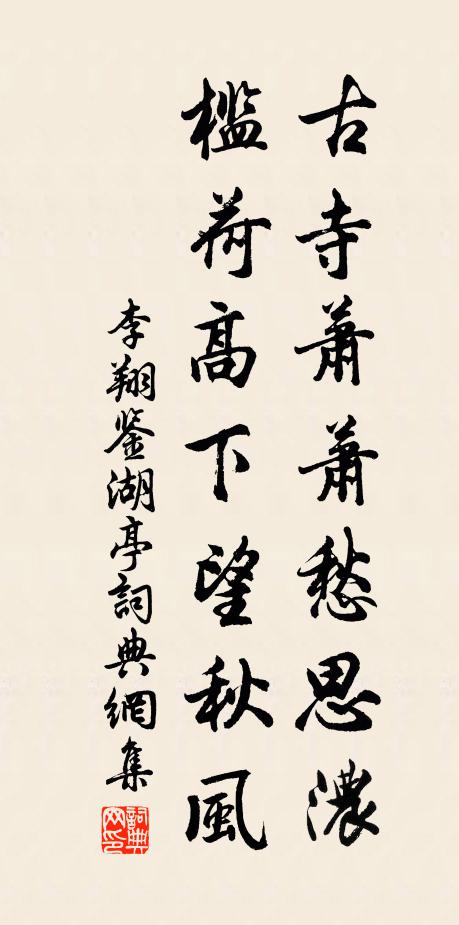 古寺蕭蕭愁思濃
檻荷高下望秋風
李翔鉴湖亭詞典網集
詞典
网印